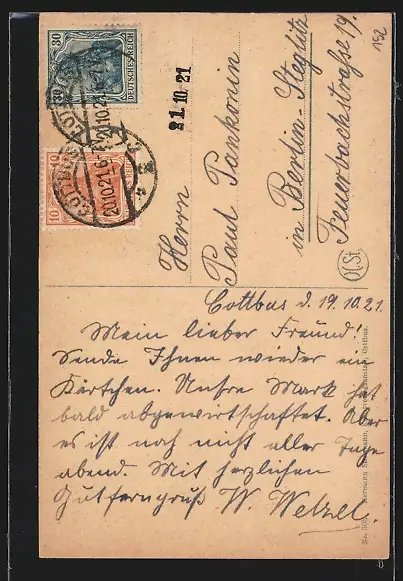 152
30
30
DEUTSCHES REICH
10
10
COTTBUS
20.10.21.6-7
21.10.21
Herrn
Paul Pankonin
in Berlin-Steglitz
Feuerbachstraße 19.
Cottbus d. 19.10.21.
Mein lieber Freund!
Sende Ihnen wieder ein
Kärtchen. Unsre Mark hat
bald abgewirtschaftet. Aber
es ist noch nicht aller Tage
abend. Mit herzlichen
Gutferngruß W. Wetzel.
Cottbus.